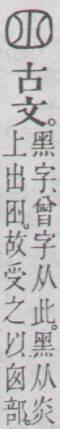 古文。
黑字、曾字从此。黑从炎
上出𡆧。故受之以囪部。